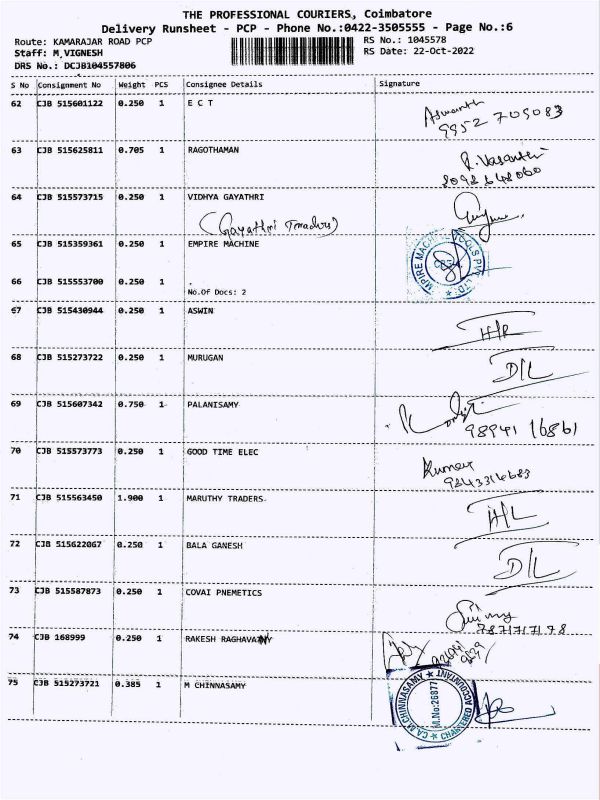 THE PROFESSIONAL COURIERS, Coimbatore
Delivery Runsheet - PCP - Phone No.:0422-3505555 - Page No.:6
Route: KAMARAJAR ROAD PCP RS No.: 1045578
Staff: M,VIGNESH RS Date: 22-Oct-2022
DRS No.: DCJB104557806
S No Consignment No Weight PCS Consignee Details Signature
62 CJB 515601122 0.250 1 E C T Aswanth
9952 705083
63 CJB 515625811 0.705 1 RAGOTHAMAN R. Vasanthi
8098648060
64 CJB 515573715 0.250 1 VIDHYA GAYATHRI
(Gayathri Traders)
65 CJB 515359361 0.250 1 EMPIRE MACHINE
66 CJB 515553700 0.250 1 .
No.Of Docs: 2
67 CJB 515430944 0.250 1 ASWIN H/R
68 CJB 515273722 0.250 1 MURUGAN D/L
69 CJB 515607342 0.750 1 PALANISAMY
98941 16861
70 CJB 515573773 0.250 1 GOOD TIME ELEC Kumar
9843316683
71 CJB 515563450 1.900 1 MARUTHY TRADERS H/L
72 CJB 515622067 0.250 1 BALA GANESH D/L
73 CJB 515587873 0.250 1 COVAI PNEMETICS
7871717178
74 CJB 168999 0.250 1 RAKESH RAGHAVA
75 CJB 515273721 0.385 1 M CHINNASAMY
CA.M.CHINNASAMY ★ CHARTERED ACCOUNTANT ★
M.No:26877